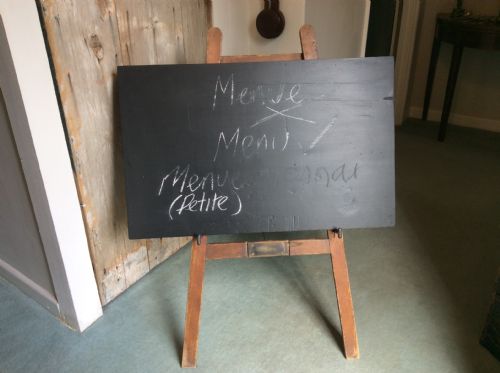 Menue
Menu
Menue
(Petite)